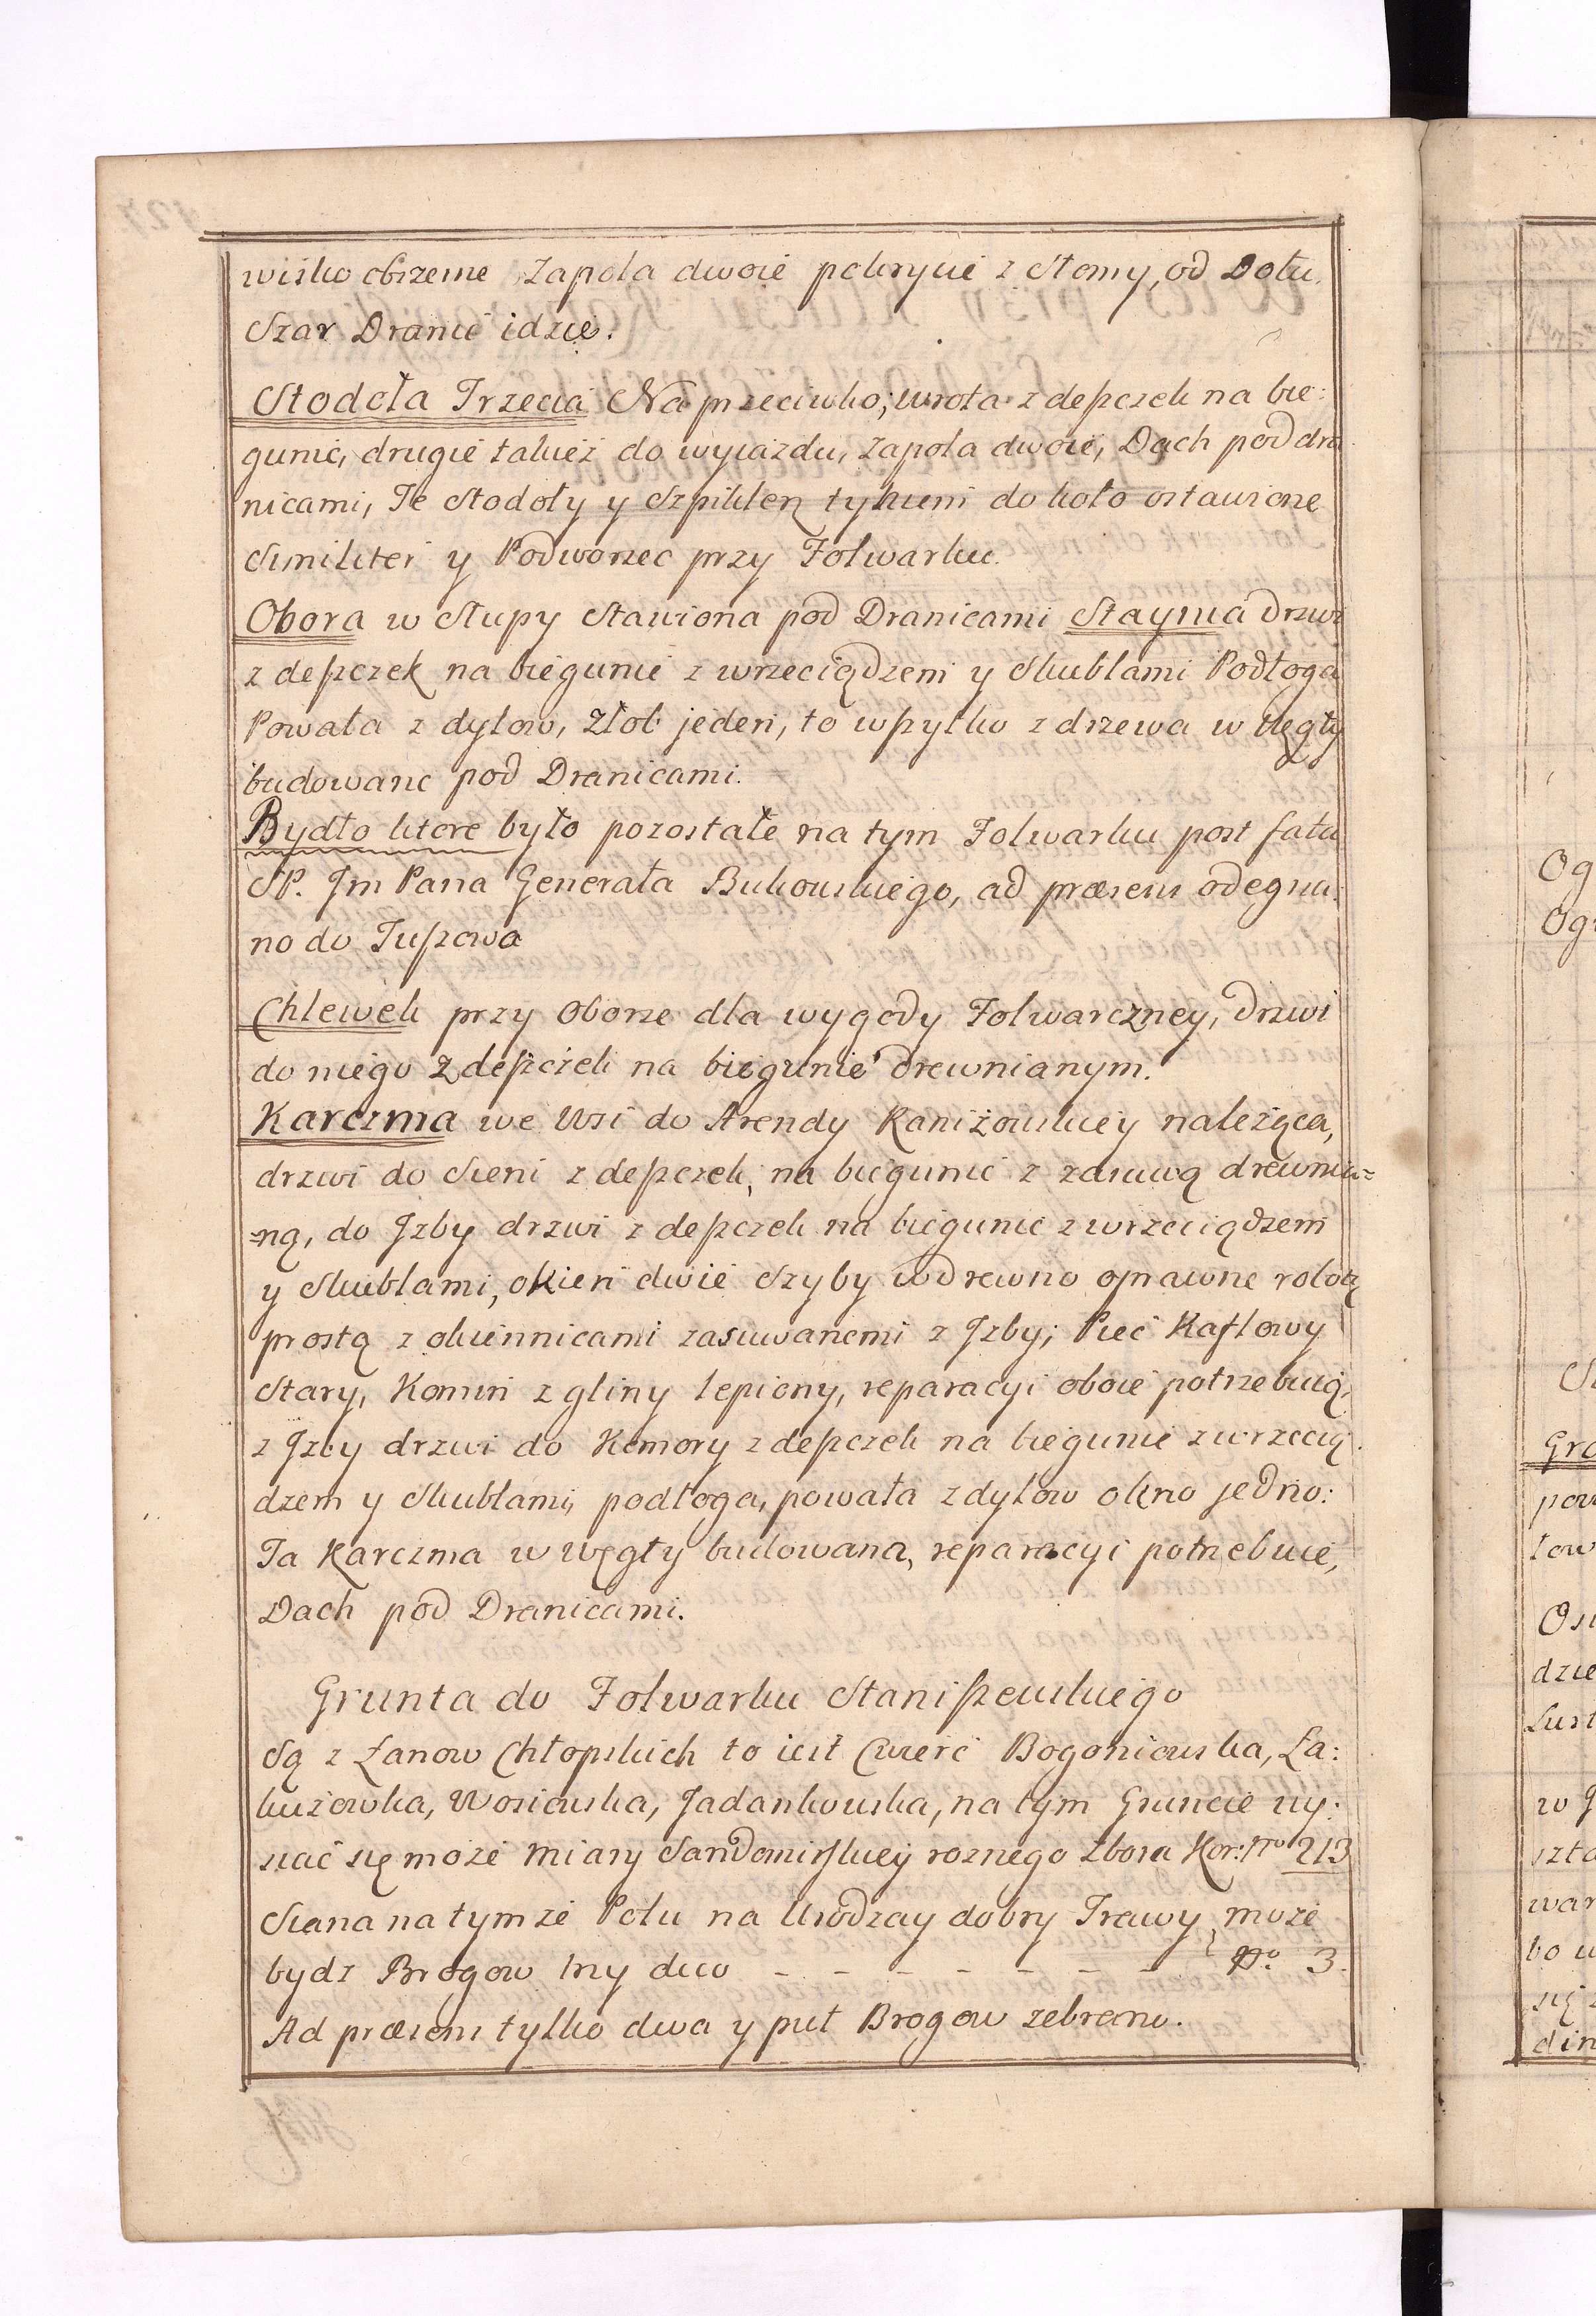 wisko obszerne Zapola dwoie pokrycie z Słomy, od Dołu
Szar Dranic idzie.
Stodoła Trzecia Na przeciwko; wrota z depczek na bie:
gunie, drugie takież do wyiazdu, zapola dwoie, Dach pod dra
nicami, Te Stodoły y Szpiklerz tykiem do koło ostawione
Similiter y Podworzec przy Folwarku.
Obora w Słupy Stawiona pod Dranicami Staynia drzwi
z depczek na biegunie z wrzeciądzem y Skublami Podłoga
Powała z dylow, Złob jeden, to wszytko z drzewa w węgły
budowane pod Dranicami.
Bydło ktore było pozostałe na tym Folwarku post fata
SP. Jm Pana Generała Bukowskiego, ad præsens odegna:
no do Tuszowa
Chlewek przy Oborze dla wygody Folwarczney, drzwi
do niego z depczek na biegunie drewnianym.
Karczma we Wsi do Arendy Raniżowskiey należąca,
drzwi do Sieni z depczek, na biegunie z zasuwą drewnia=
=ną, do Jzby drzwi z depczek na biegunie z wrzeciądzem
y Skublami, okien dwie Szyby w drewno oprawne robotą
prostą z okiennicami zasuwanemi z Jzby; Piec Kaflowy
Stary, Komin z gliny lepiony, reparacyi oboie potrzebuią,
z Jzby drzwi do Komory z depczek na biegunie z wrzecią
dzem y Skublami, podłoga, powała z dylow okno jedno:
Ta Karczma w węgły budowana, reparacyi potrzebuie,
Dach pod Dranicami.
Grunta do Folwarku Staniszewskiego
Są z Łanow Chłopskich to iest Cwierć Bogoniowska, Ła:
kuzowka, Wosiowska, Jadankowska, na tym Gruncie wy:
siać się może Miary Sandomirskiey roznego Zboza Kor: Nro 213
Siana na tymże Polu na Urodzay dobry Trawy może
bydz Brogow trzy dico - - - - - - - No: 3.
Ad præsens tylko dwa y puł Brogow zebrano.